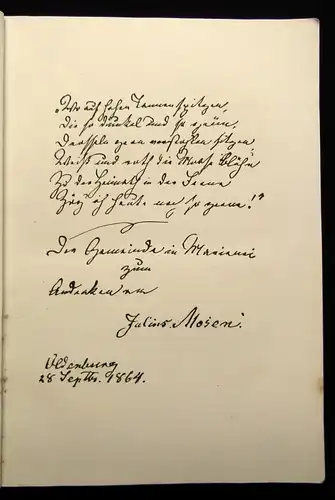 „Wo auf hohen Tannenspitzen,
Die so dunkel und so grün,
Drosseln gern verstohlen sitzen,
Weiß und roth die Moose blühn
Zu der Heimath in der Ferne
Zög' ich heute noch so gerne!"
Der Gemeinde in Marieney
zum
Andenken von
Julius Mosen.
Oldenburg
28 Septbr. 1864.